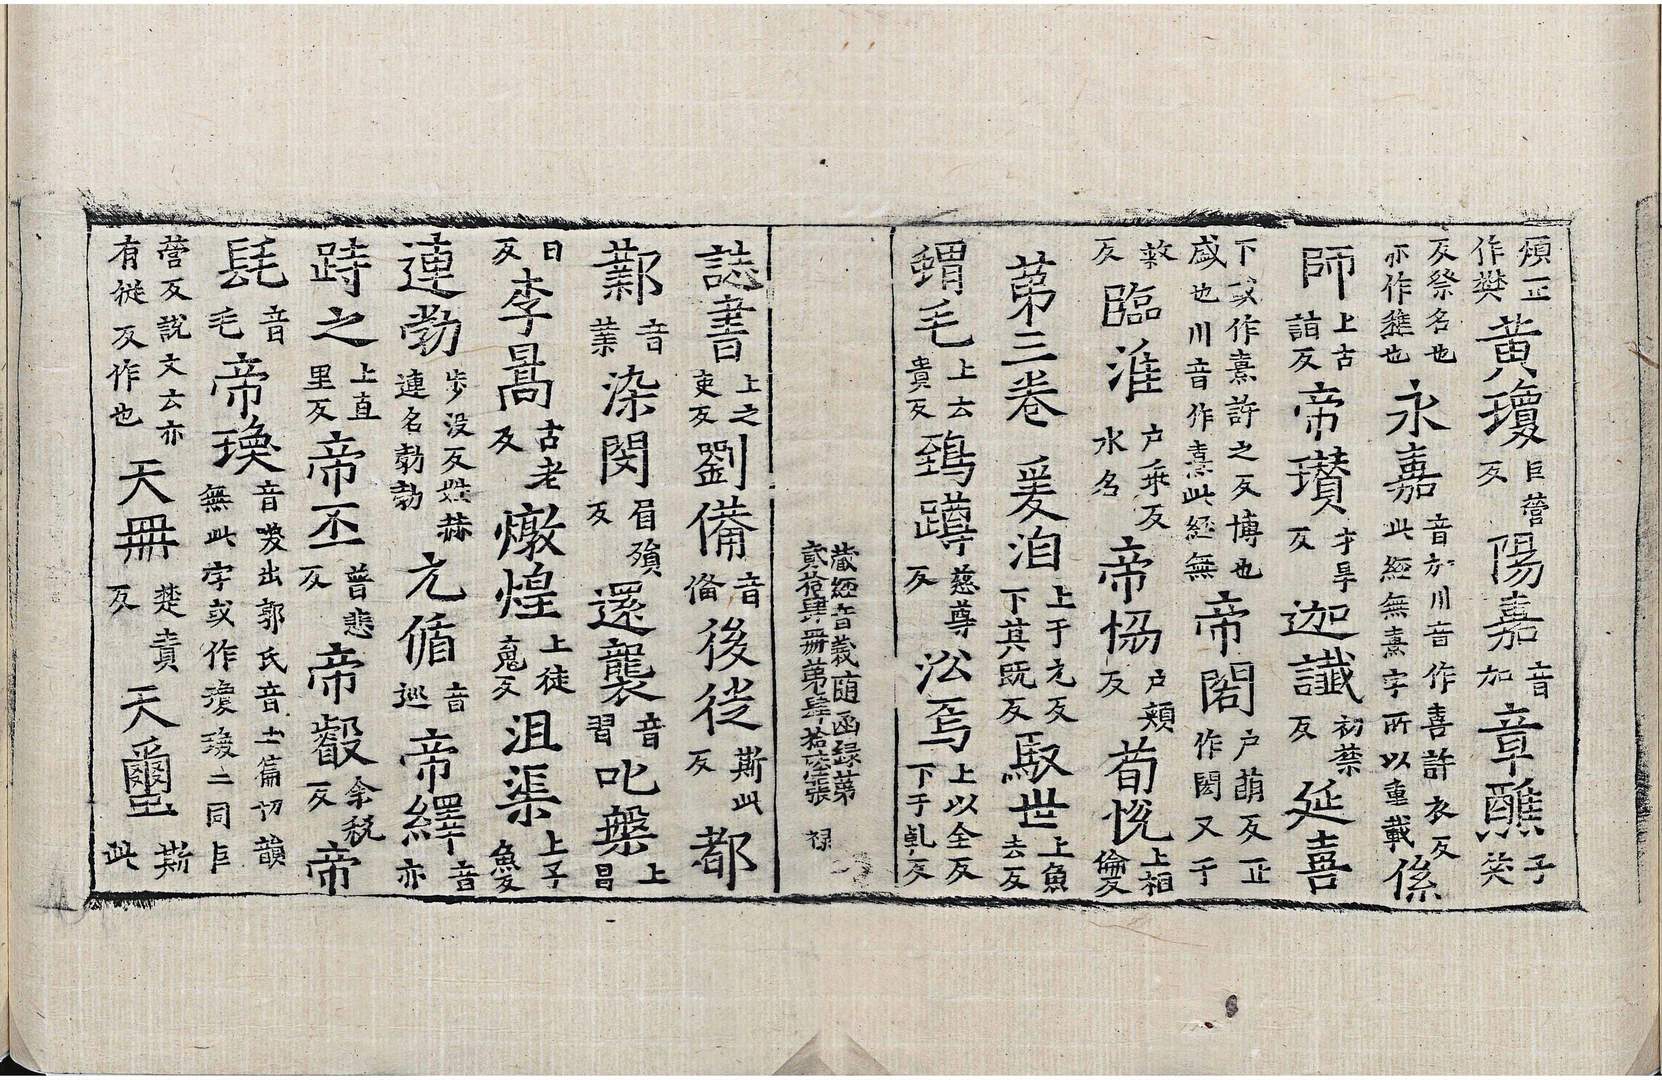 煩正作樊黃瓊巨營反陽嘉音加章醮子笑
反祭名也亦作𥛲也永嘉音加川音作喜許衣反此經無熹字所以重載係
師上古詣反帝瓚才旱反迦讖初禁反延喜
下或作熹許之反博也盛也川音作熹此經無帝閎户萌反正作閎又于
救反臨淮户乖反水名帝協户頰反荀悅上相倫反
第三卷爰洎上于元反下其既反馭世上魚去反
蝟毛上云貴反鵄蹲慈尊反㳂焉上以全反下于乹反
藏經音義随函録第
貳拾肆冊第肆拾張 禄
誌書上之吏反劉備音俻後徙斯此反都
鄴音業染閔眉殞反還襲音習叱槃上昌
日反李暠古老反燉煌上徒䰟反沮渠上子魚反
連勃步没反姓赫連名勃勃元循音巡帝繹音亦
跱之上直里反帝丕普悲反帝叡余稅反帝
髦音毛帝瑍音出郭氏音上篇切韻無此字或作二同巨
營反說文云亦有從反作也天冊楚責反天璽斯此